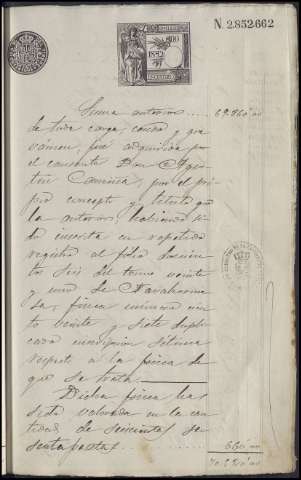 N. 2.852.662
1882
Suma anterior.... 69.960
de toda carga, censo y gra
vámen, fué adquirida por
el causante Don Agus
tin Caminca, por el pro
pio concepto y titulo que
la anterior, habiendo si
do inscrita en repetido
registro al fólio doscien
tos seis del tomo veinte
y uno de
sa, finca número cien
to veinte y siete dupli
cado inscripcion setima
respecto a la finca de
que se trata.
Dicha finca ha
sido valorada en la can
tidad de seiscientas se
senta pesetas... 660
70.620